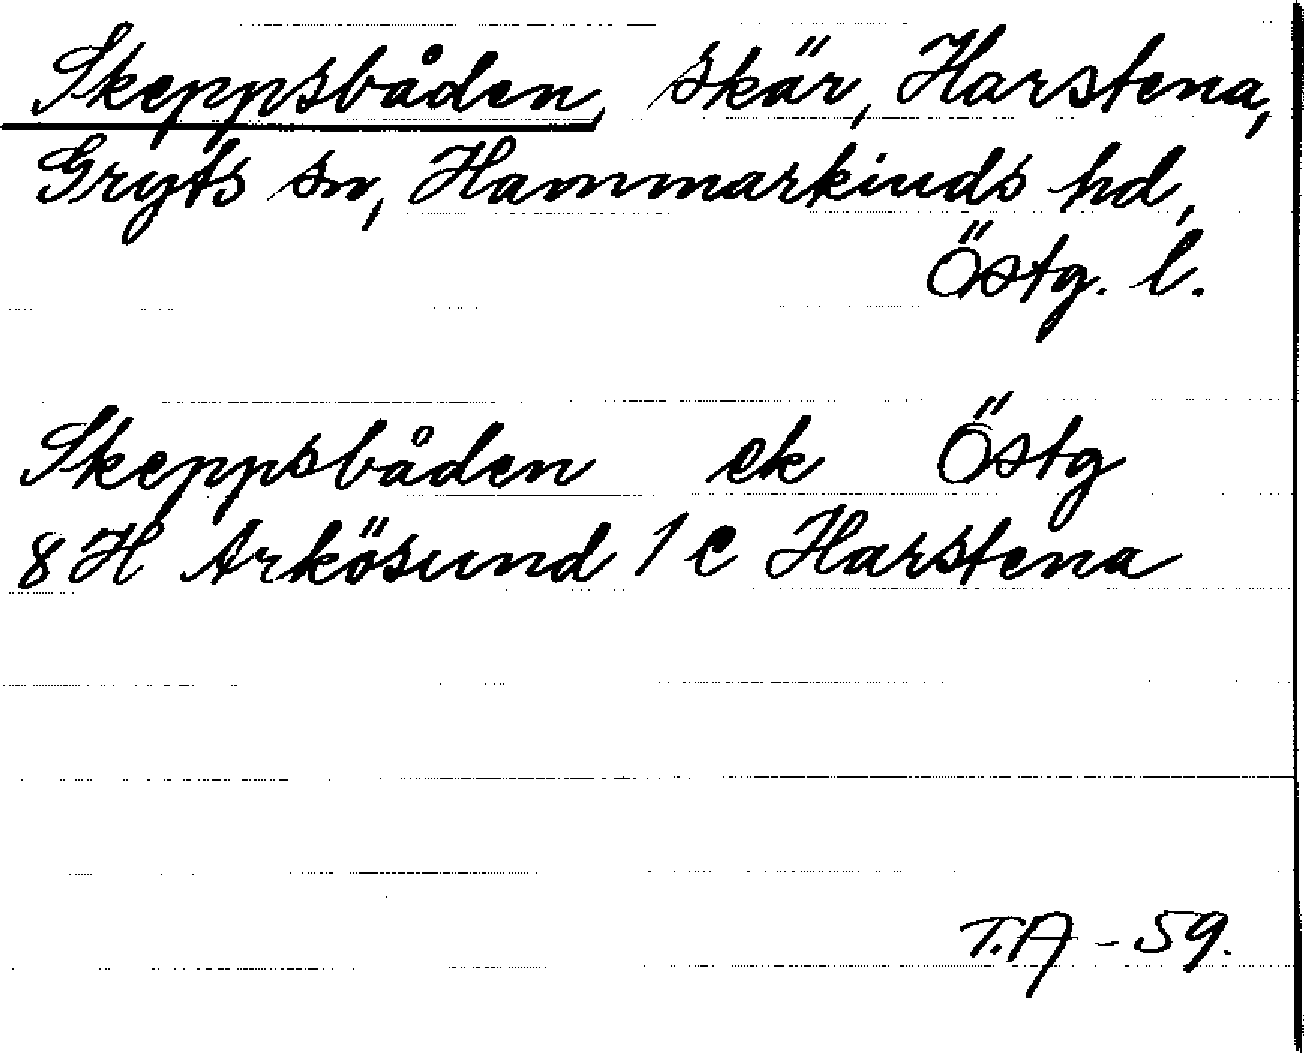 Skeppsbåden, skär, Harstena,
Gryts sn, Hammarkinds hd,
Östg. l.
Skeppsbåden ek Östg
8 H Arkösund 1 c Harstena
T.A - 59.